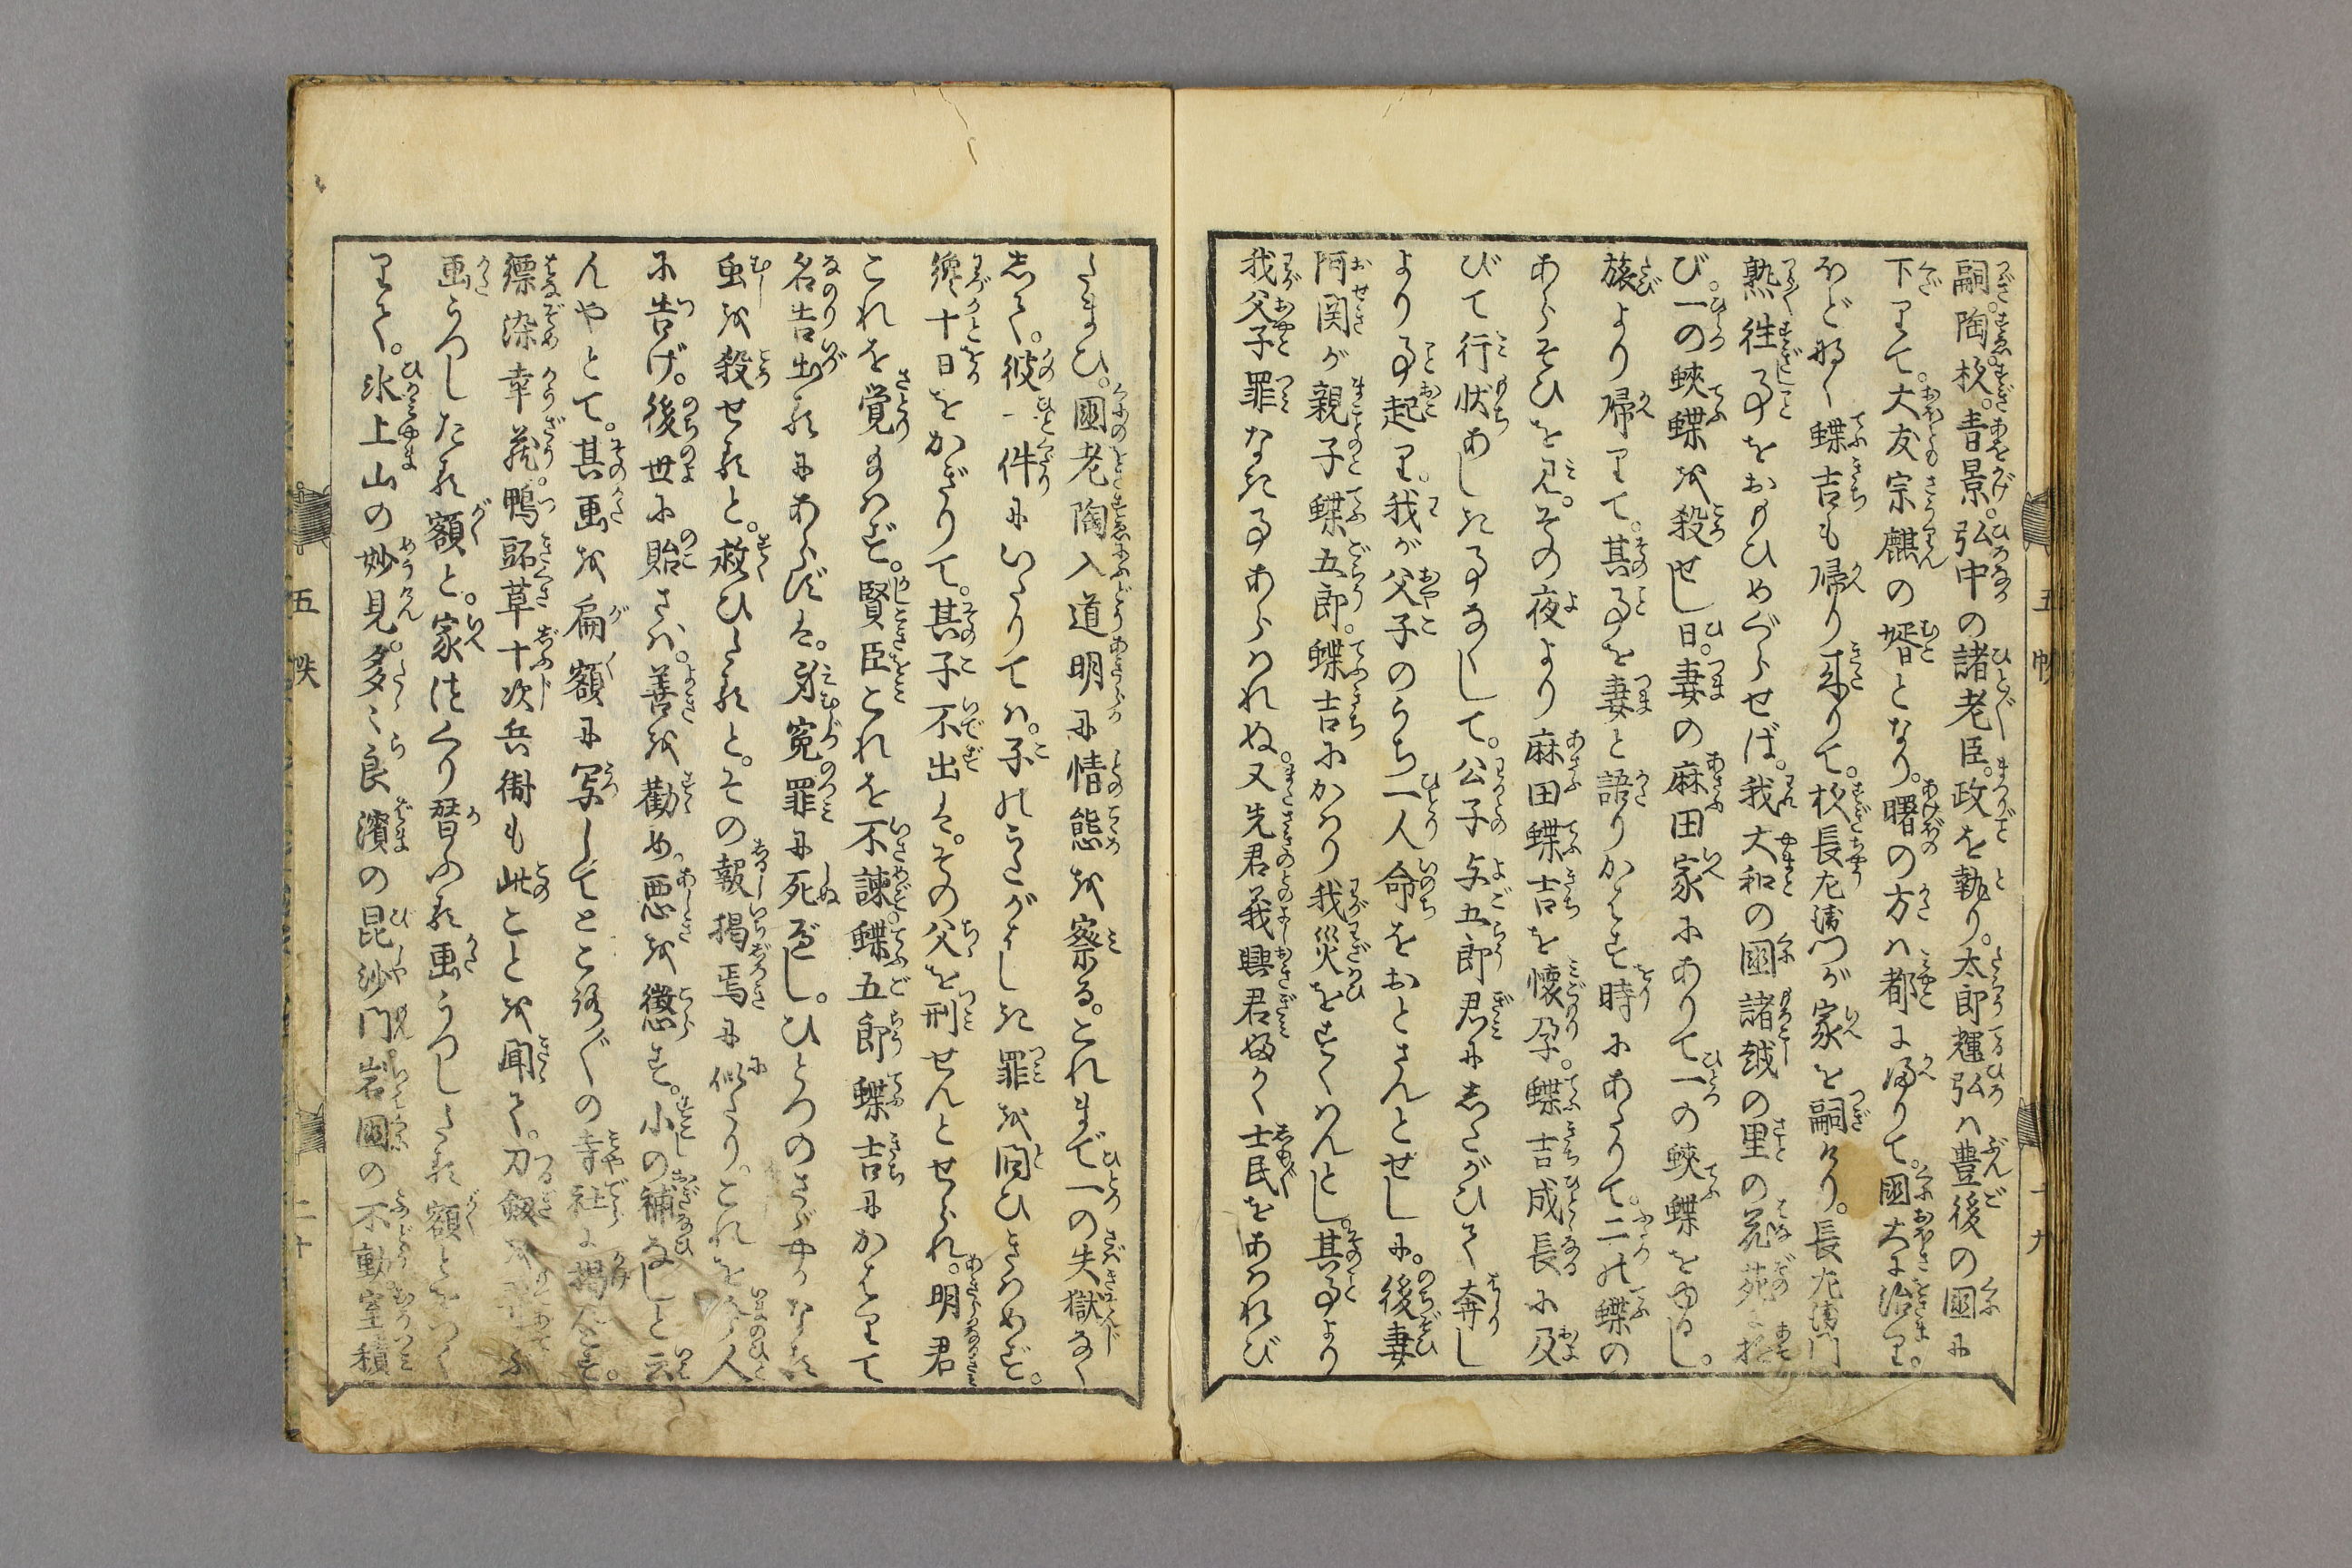 嗣。陶杦。青景。弘中の諸老臣。政を執り。太郎輝弘ハ豊後の國に
下りて。大友宗麟の婿となり。曙の方ハ都に帰りて。國大に治り。
ほど好く蝶吉も帰り来りて。杦長左衛門が家を嗣けり。長左衛門
熟徃事をおもひめぐらせば。我大和の國諸越の里の花苑に
び。一の蛺蝶を殺せし日。妻の麻田家にありて一の蛺蝶をゆるし。
旅より帰りて。其事を妻と語りかはす時にあたりて。二の蝶の
あらそひを見。その夜より麻田蝶吉を懐孕。蝶吉成長に及
びて行状あしき事なくして。公子与五郎君にしたがひて奔し
より事起り。我が父子のうち一人命をおとさんとせしに。後妻
阿関が親子蝶五郎。蝶吉にかはり我災をすくはんとし。其事より
我父子罪なき事あらはれぬ。又先君義興君ふかく士民をあはれび
たまひ。國老陶入道明に情態を察る。これまで一の失獄なく
して。彼一件にいたりては。子のうたがはしき罪を問ひきはめず。
纔十日をかぎりて。其子不出は。その父を刑せんとせられ。明君
これを覚給はず。賢臣これを不諫蝶五郎蝶吉にかはりて
名告出るにあらずは。身寃罪に死べし。ひとつのさゞやかなる
虫を殺せると。救ひたると。その報掲焉に似たり。これを今人
に告げ。後世に貽さバ。善を勧め。悪を懲す。小の補なしと云
んやとて。其画を扁額に写してところ〴〵の寺社に掲んとす。
縹染幸蔵。鴨跖草十次兵衛も此ことを聞て。刀劔を
画うつしたる額と。家漬くり替ふる画うつしたる額とをつく
りて。氷上山の妙見。多々良濱の昆沙門岩國の不動室積
五帙
十九
五帙
二十